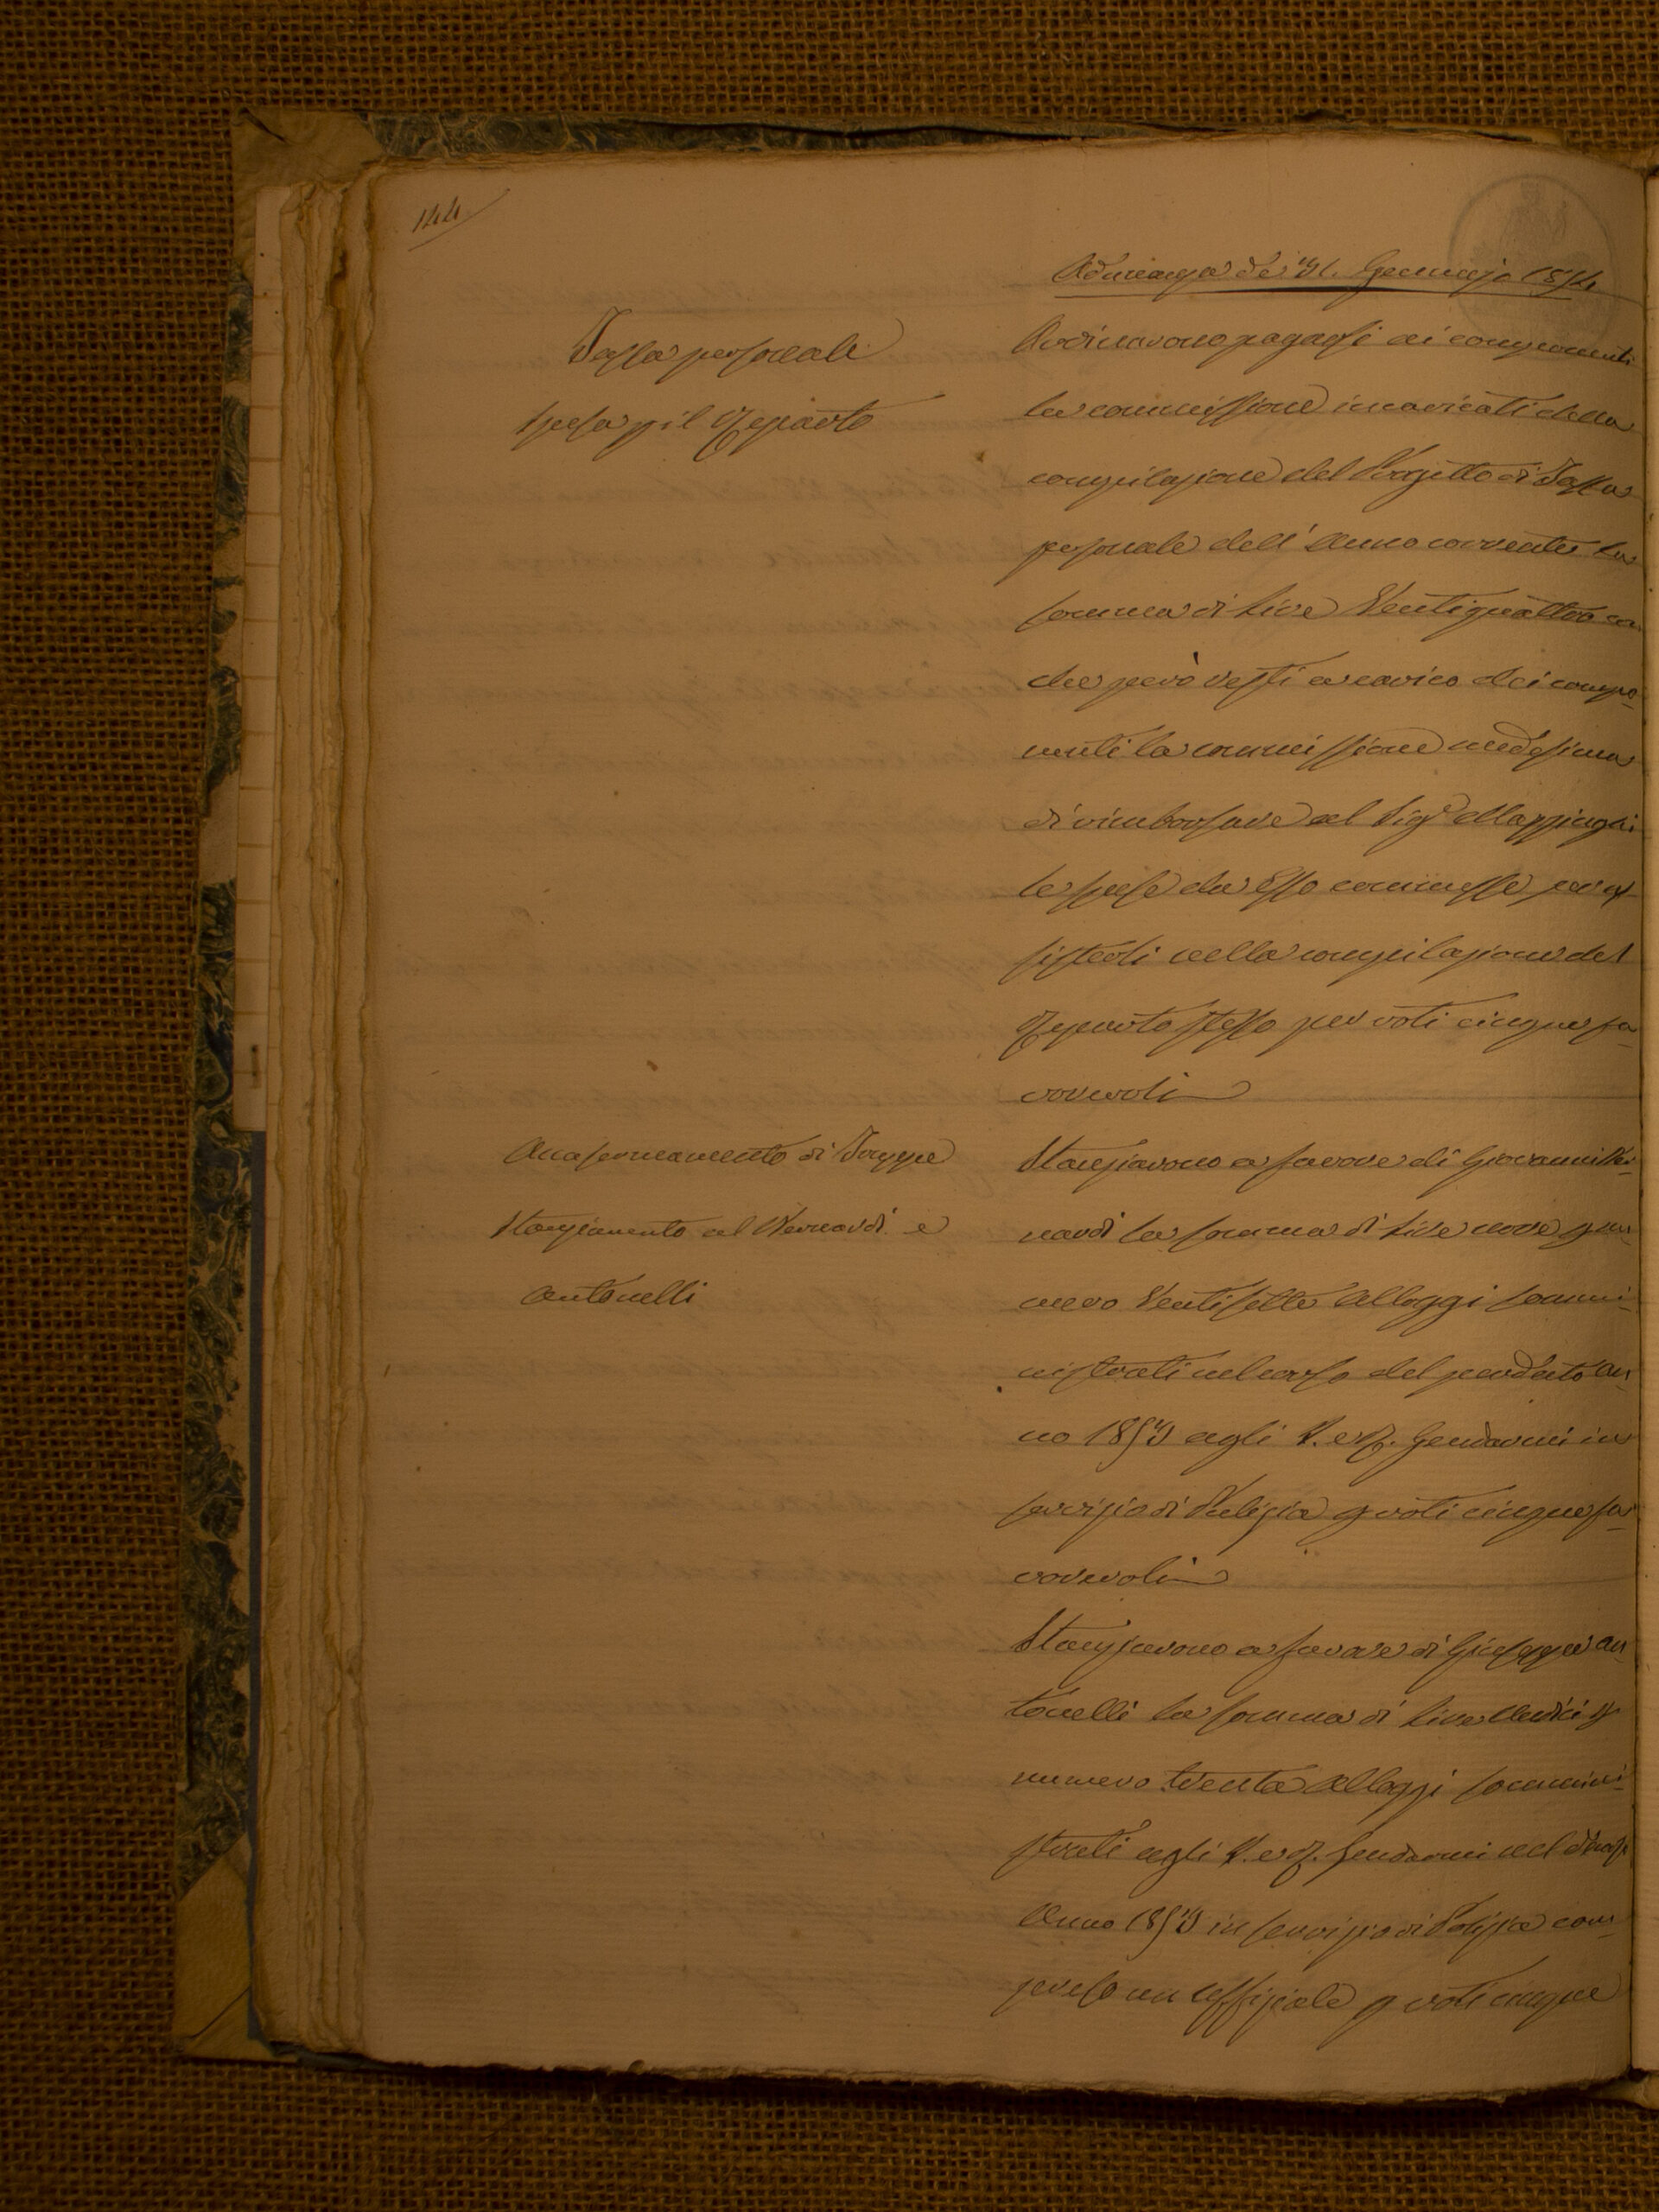 144
Adunanza de' 31. Gennajo 1854
Tassa personale
spesa p il Reparto
Ordinarono pagarsi ai componenti
la commissione incaricati della
compilazione del Progetto di Tassa
personale dell'Anno corrente la
somma di Lire Ventiquattro
che però resti a carico dei compo-
nenti la commissione medesima
di rimborsare al Sigr
le spese da Esso commesse per as-
sisterli nella compilazione del
Reparto stesso per voti cinque fa-
vorevoli
Accasermamento di Truppe
Stanziamento al Bernardi e
Antonelli
Stanziarono a favore di Giovanni Ber-
nardi la somma di Lire nove p nu-
mero Ventisette Alloggi sommi-
nistrati nel corso del perduto An-
no 1853 agli I. e R. Gendarmi in
servizio di Pulizia p voti cinque fa-
vorevoli
Stanziarono a favore di Giuseppe An-
tonelli la somma di Lire Undici p
numero trenta Alloggi sommini-
strati agli I. e R. Gendarmi nel
Anno 1853 in servizio di Polizia com-
preso un Uffiziale p voti cinque